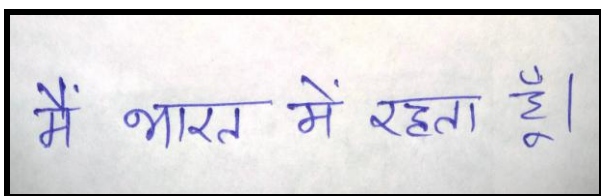 मैं भारत में रहता हूँ।